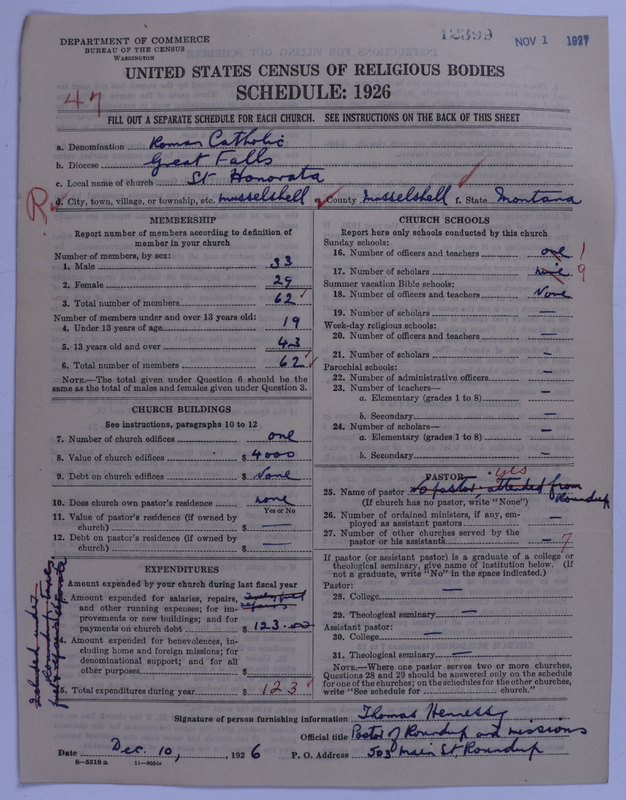 DEPARTMENT OF COMMERCE
BUREAU OF THE CENSUS
WASHINGTON
12399
NOV 1 1927
UNITED STATES CENSUS OF RELIGIOUS BODIES
SCHEDULE: 1926
47
FILL OUT A SEPARATE SCHEDULE FOR EACH CHURCH. SEE INSTRUCTIONS ON THE BACK OF THIS SHEET
a. Denomination Roman Catholic
b. Diocese Great Falls
c. Local name of church St Honorata
R
d. City, town, village, or township, etc. Musselshell e. County Musselshell f. State Montana
MEMBERSHIP
Report number of members according to definition of
member in your church
Number of members, by sex:
1. Male 33
2. Female 29
3. Total number of members 62
Number of members under and over 13 years old:
4. Under 13 years of age 19
5. 13 years old and over 43
6. Total number of members 62
NOTE.—The total given under Question 6 should be the
same as the total of males and females given under Question 3.
CHURCH BUILDINGS
See instructions, paragraphs 10 to 12
7. Number of church edifices one
8. Value of church edifices $ 4000
9. Debt on church edifices $ None
10. Does church own pastor's residence none
Yes or No
11. Value of pastor's residence (if owned by
church) $ —
12. Debt on pastor's residence (if owned by
church) $ —
EXPENDITURES
Amount expended by your church during last fiscal year
Amount expended for salaries, repairs,
and other running expenses; for im-
provements or new buildings; and for
payments on church debt $ 123.00
14. Amount expended for benevolences, in-
cluding home and foreign missions; for
denominational support; and for all
other purposes $
15. Total expenditures during year $ 123
Included under
Roundup
CHURCH SCHOOLS
Report here only schools conducted by this church
Sunday schools:
16. Number of officers and teachers one 1
17. Number of scholars nine 9
Summer vacation Bible schools:
18. Number of officers and teachers None
19. Number of scholars —
Week-day religious schools:
20. Number of officers and teachers —
21. Number of scholars —
Parochial schools:
22. Number of administrative officers —
23. Number of teachers—
a. Elementary (grades 1 to 8) —
b. Secondary —
24. Number of scholars—
a. Elementary (grades 1 to 8) —
b. Secondary —
PASTOR yes
25. Name of pastor No pastor attended from
(If church has no pastor, write "None") Roundup
26. Number of ordained ministers, if any, em-
ployed as assistant pastors —
27. Number of other churches served by the
pastor or his assistants — 7
If pastor (or assistant pastor) is a graduate of a college or
theological seminary, give name of institution below. (If
not a graduate, write "No" in the space indicated.)
Pastor:
28. College —
29. Theological seminary —
Assistant pastor:
30. College —
31. Theological seminary —
NOTE.—Where one pastor serves two or more churches,
Questions 28 and 29 should be answered only on the schedule
for one of the churches; on the schedules for the other churches,
write "See schedule for church."
Signature of person furnishing information Thomas Hennessy
Official title Pastor of Roundup and missions
Date Dec. 10, 1926 P. O. Address 503 Main St, Roundup
8—5518 a